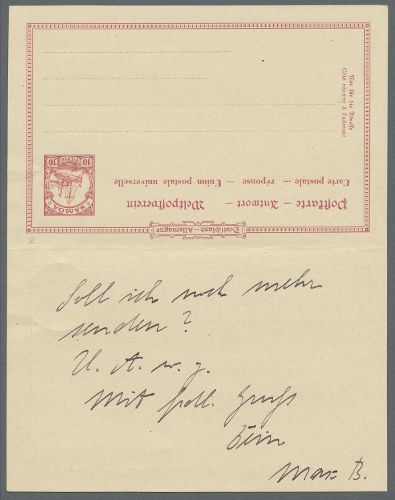 Deutschland – Allemagne
Postkarte – Antwort – Weltpostverein
Carte postale – réponse – Union postale universelle
SAMOA
10 10
Nur für die Adresse
Côté réservé à l'adresse
Soll ich noch mehr
senden?
U. A. w. g.
Mit frdl. Gruß
Dein
Max B.